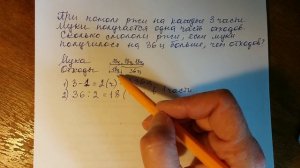 При помоле ржи на каждые 3 части
муки получается одна часть отходов.
Сколько смололи ржи, если муки
получилось на 36 ц больше, чем отходов?
Мука
Отходы
1) 3-1=2(ч)
части
2) 36:2=18(